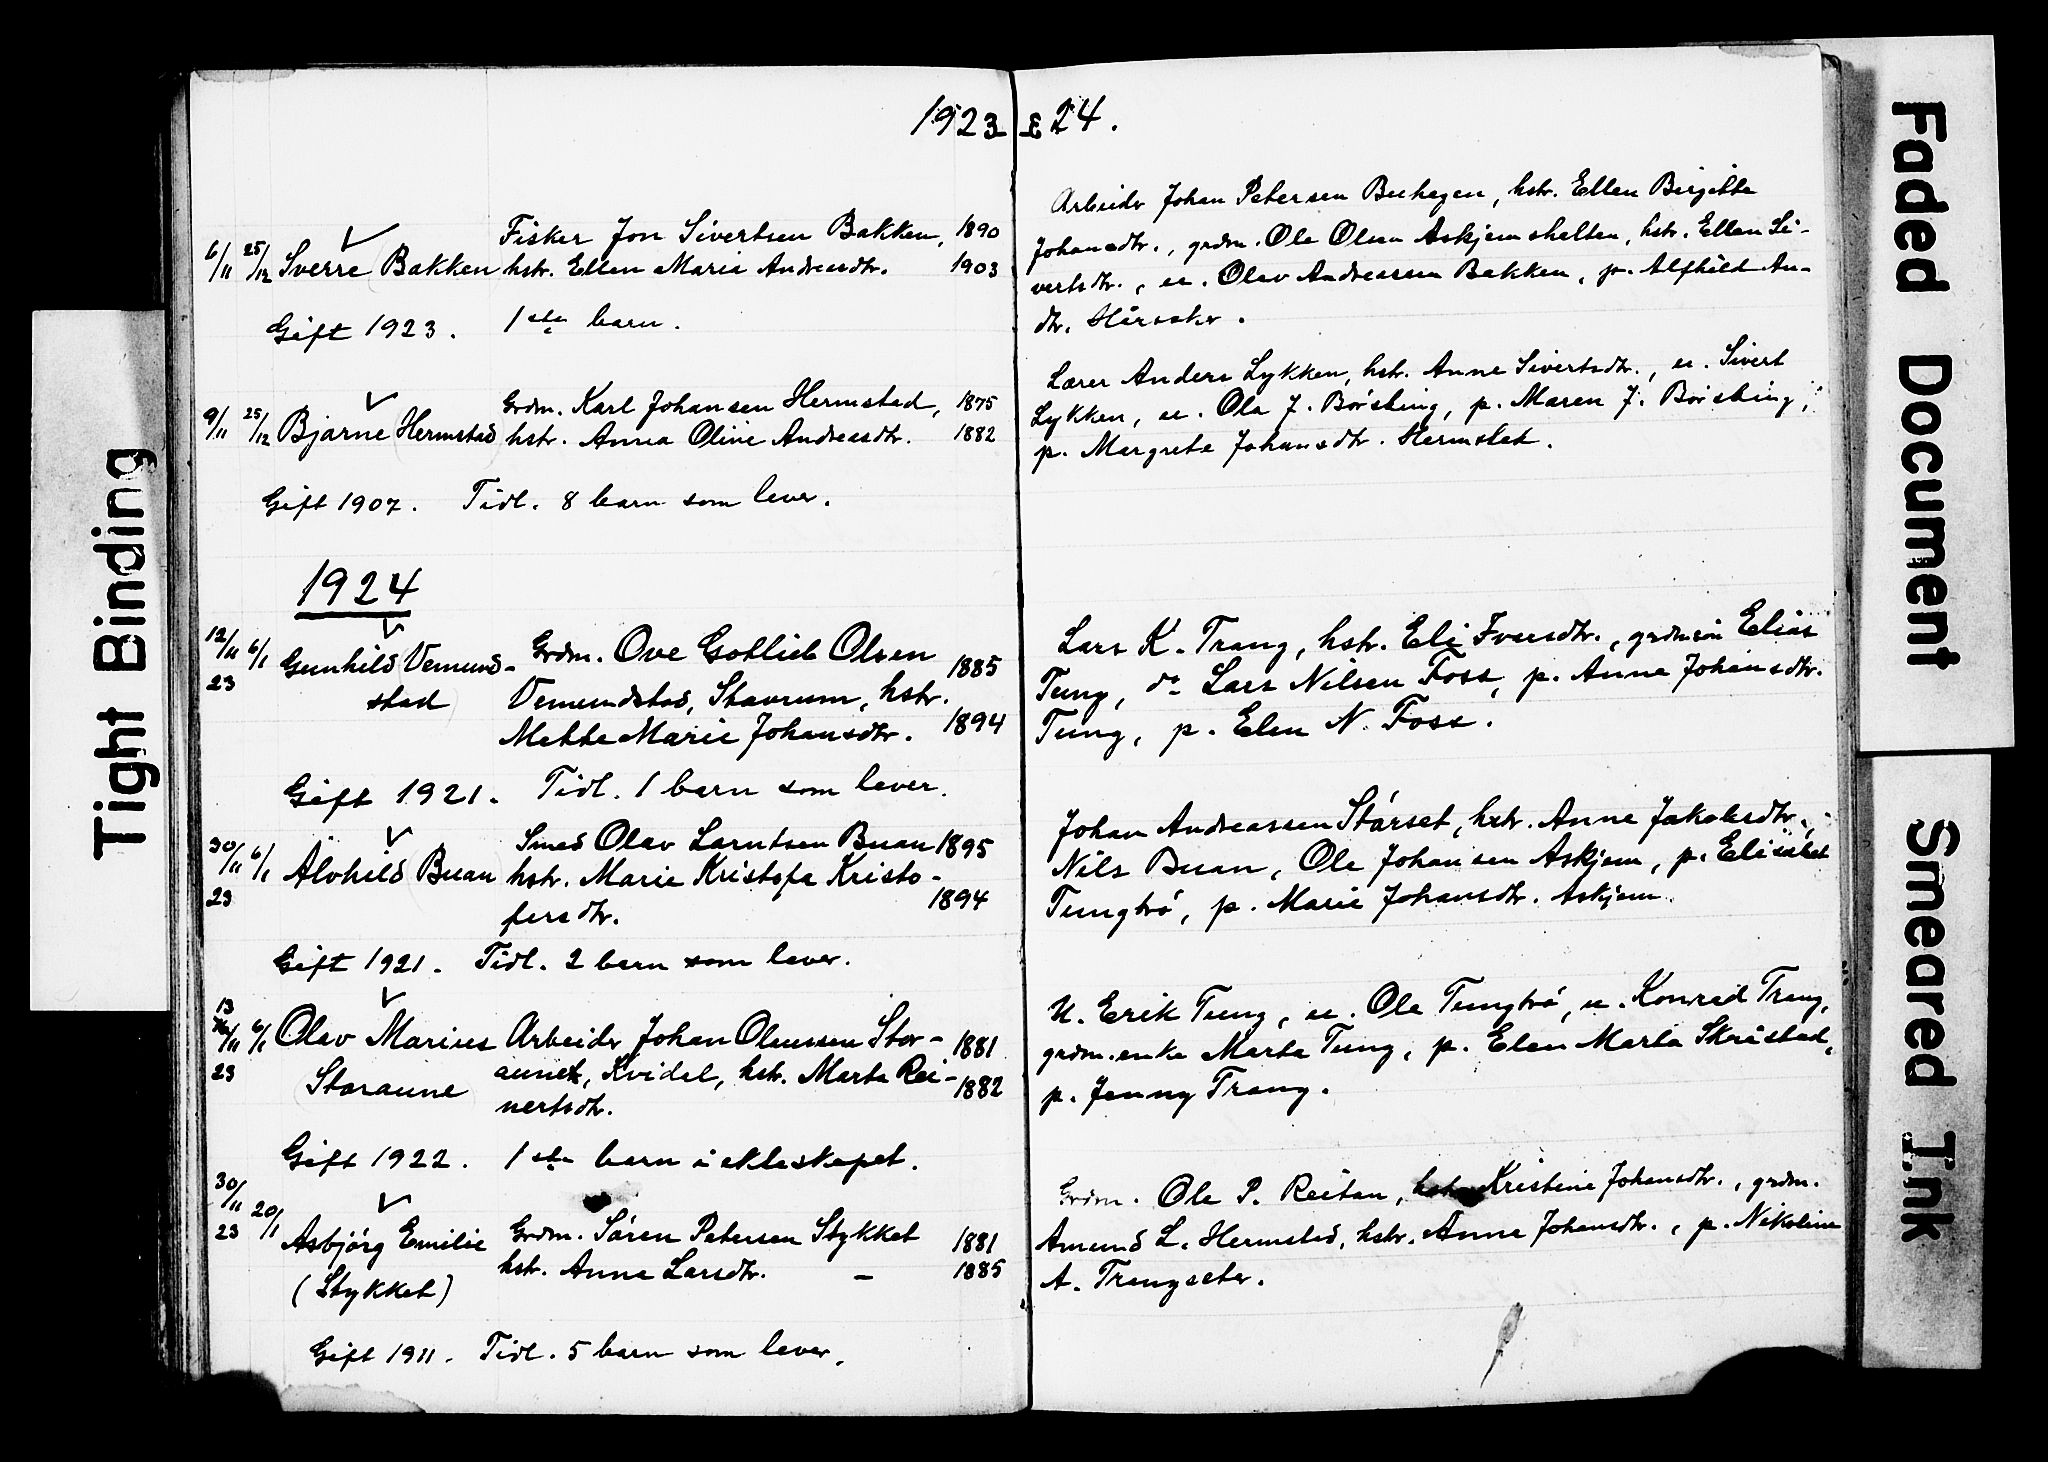 1923 & 24.
6/11 25/12 Sverre Bakken
Fisker Jon Sivertsen Bakken, 1890
hstr. Ellen Marie Andreasdtr. 1903
Gift 1923. 1ste barn.
Arbeider Johan Petersen Buhagen, hstr. Ellen Birgitte
Johansdtr., grdm. Ole Olsen Askjemshelten, hstr. Ellen Si-
vertsdtr., u. Olav Andreassen Bakken, p. Alfhild An-
dr.
9/11 25/12 Bjarne Hermstad
Grdm. Karl Johansen Hermstad, 1875
hstr. Anna Oline Andreasdtr. 1882
Gift 1907. Tidl. 8 barn som lever.
Lærer Anders Lykken, hstr. Anne Sivertsdtr., u. Sivert
Lykken, u. Ola J. Börsting, p. Maren J. Börsting,
p. Margrete Johansdtr. Hermstad.
1924
12/11 23 6/1 Gunhild Vemund-
stad
Grdm. Ove Gotlieb Olsen
Vemundstad, Stavrum, hstr. 1885
Mette Marie Johansdtr. 1894
Gift 1921. Tidl. 1 barn som lever.
Lars K. Trang, hstr. Eli Iversdtr., grdmsön Elias
Tung, do Lars Nilsen Foss, p. Anne Johansdtr.
Tung, p. Elen N. Foss.
30/11 23 6/1 Alvhild Buan
Smed Olav Larntsen Buan 1895
hstr. Marie Kristofa Kristo-
fersdtr. 1894
Gift 1921. Tidl. 2 barn som lever.
Johan Andreassen Störset, hstr. Anne Jakobsdtr.,
Nils Buan, Ole Johansen Askjem, p. Elisabet
Tungtrö, p. Marie Johansdtr. Askjem.
13/11 23 6/1 Olav Marius
Storaune
Arbeider Johan Olaussen Stor- 1881
aunet, Kvidal, hstr. Marta Rei- 1882
nertsdtr.
Gift 1922. 1ste barn i ekteskapet.
U. Erik Tung, u. Ole Tungtrö, u. Konrad Trang,
grdm.enke Marta Tung, p. Elen Marta Skrustad,
p. Jenny Trang.
30/11 23 20/1 Asbjörg Emilie
(Stykket)
Grdm. Sören Petersen Stykket 1881
hstr. Anne Larsdtr. — 1885
Gift 1911. Tidl. 5 barn som lever.
Grdm. Ole P. Reitan, hstr. Kristine Johansdtr., grdm.
Amund L. Hermstad, hstr. Anne Johansdtr., p. Nikoline
A. Trangseter.
Tight Binding
Faded Document
Smeared Ink